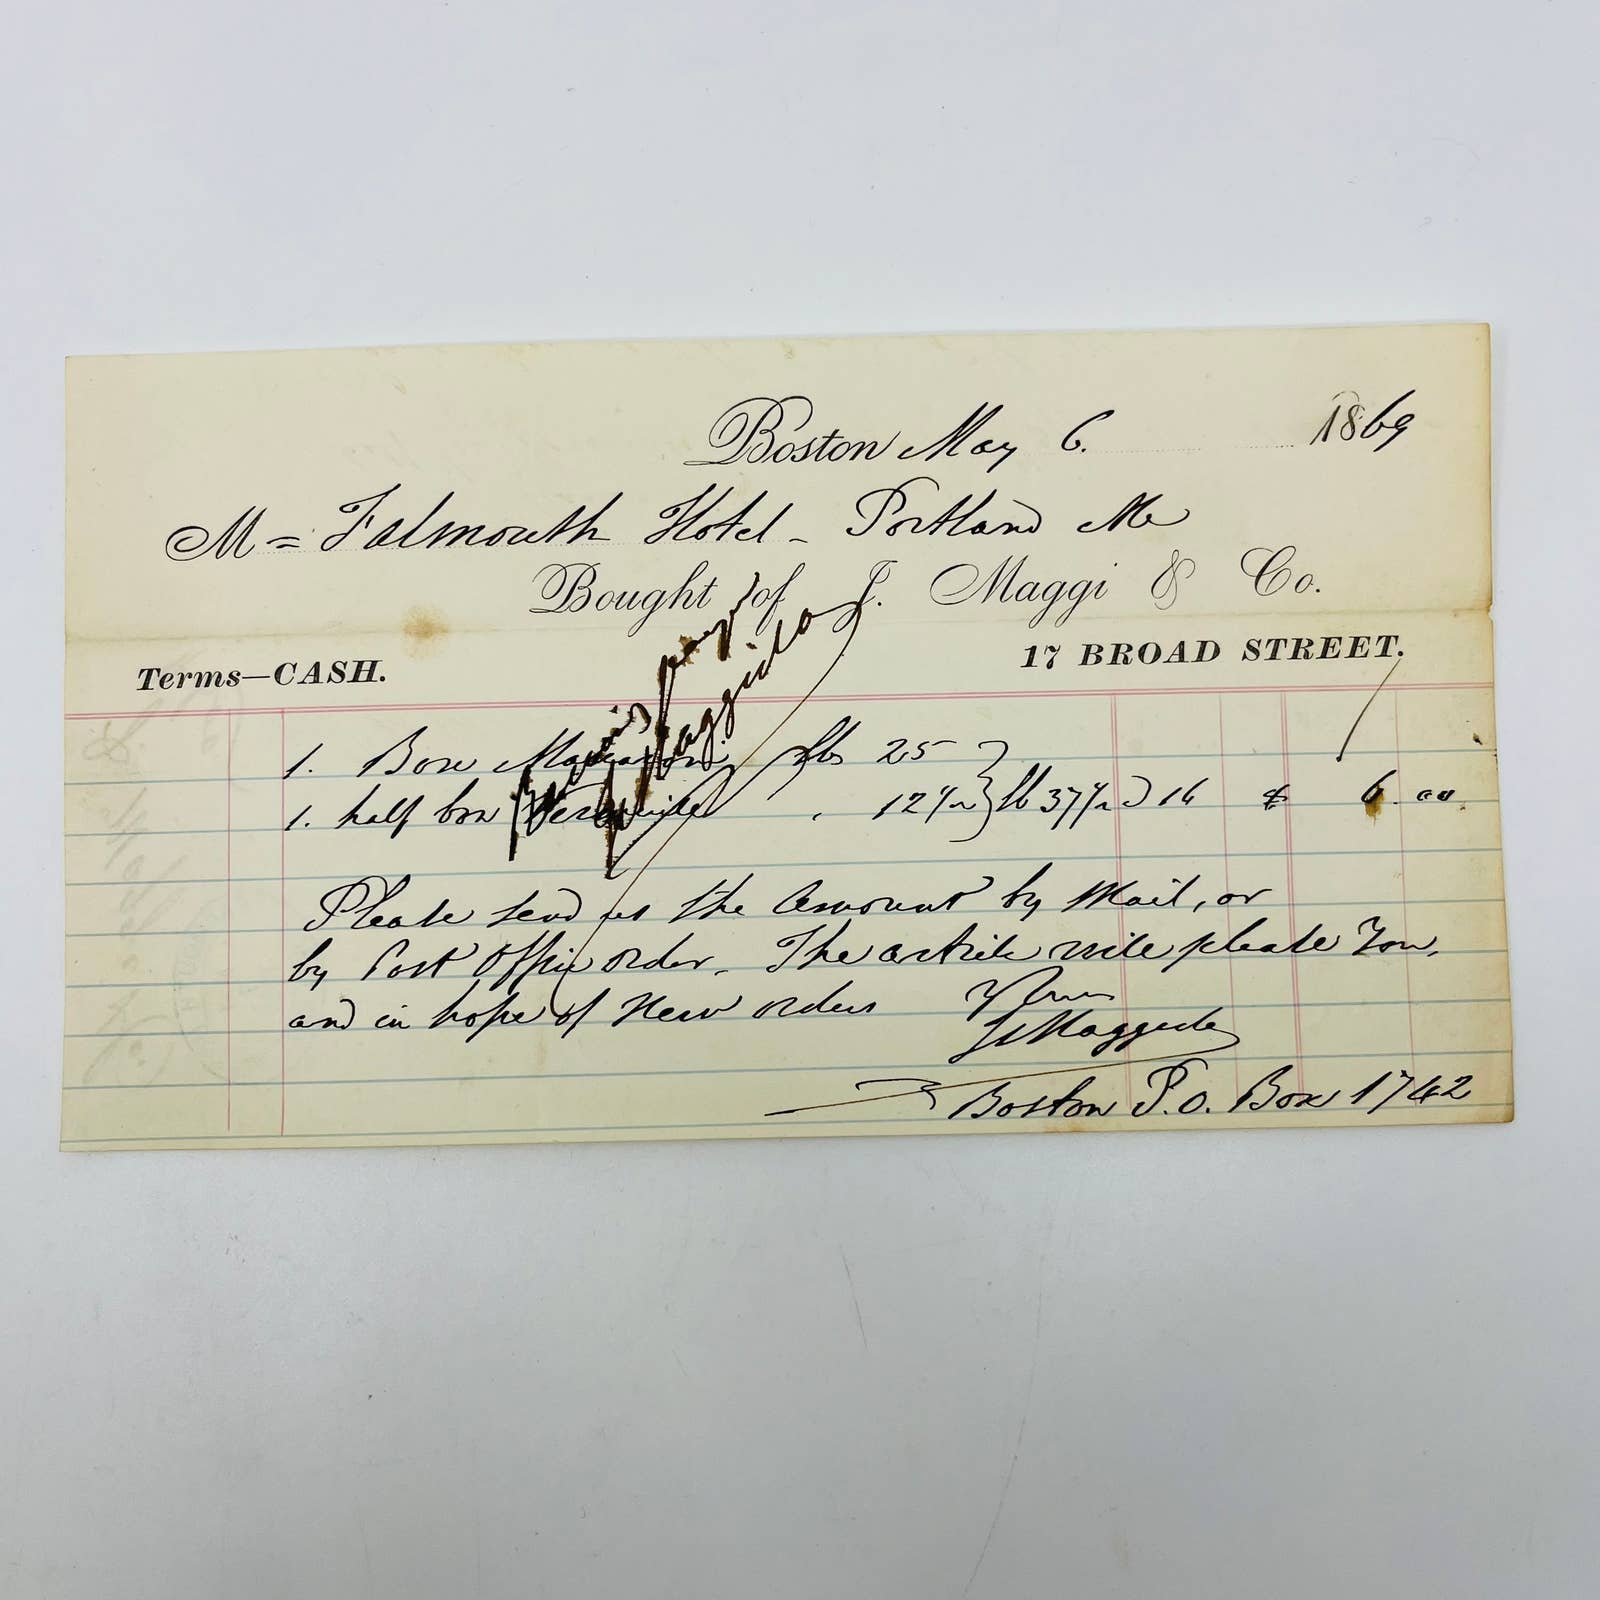 Boston May 6. 1869
M = Falmouth Hotel - Portland Me
Bought of J. Maggi & Co.
Terms—CASH. 17 BROAD STREET.
1. Box Macaroni lbs 25
1. half box Vermicelli , 12 1/2 } lb 37 1/2 @ 16 $ 6.00
Please send us the Amount by Mail, or
by Post Office order. The article will please You,
and in hope of New orders Yours
J Maggi & Co
Boston P.O. Box 1742